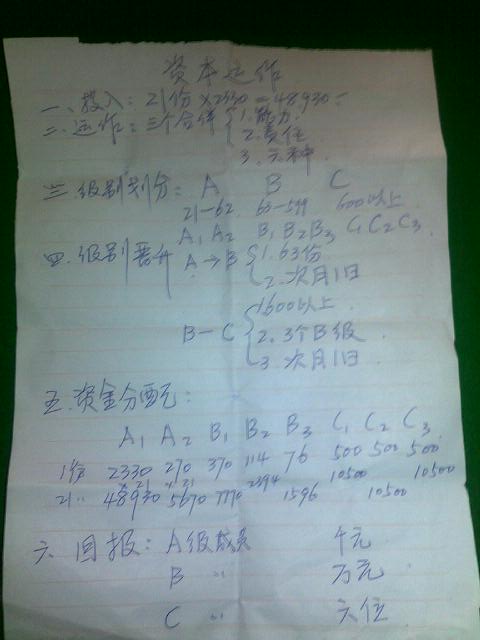 资本运作
一、投入: 21份×2330=48930
二、运作: 三个合伴 1.能力
2.责任
3.
三.级别划分: A B C
21-62 63-599 600以上
A₁ A₂ B₁ B₂ B₃ C₁ C₂ C₃
四.级别晋升 A→B 1.63份
2.次月1日
B-C 1600以上
2.3个B级
3.次月1日
五.资金分配:
A₁ A₂ B₁ B₂ B₃ C₁ C₂ C₃
1份 2330 270 370 114 76 500 500 500
21〃 48930 5670 7770 2394 1596 10500 10500 10500
六.回报: A级成员 千元
B 〃 万元
C 〃 六位